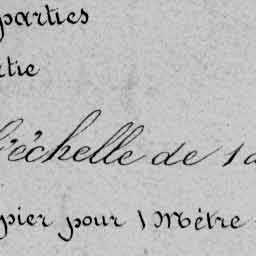 parties
rtie
l'échelle de 1 d
pier pour 1 Mètre